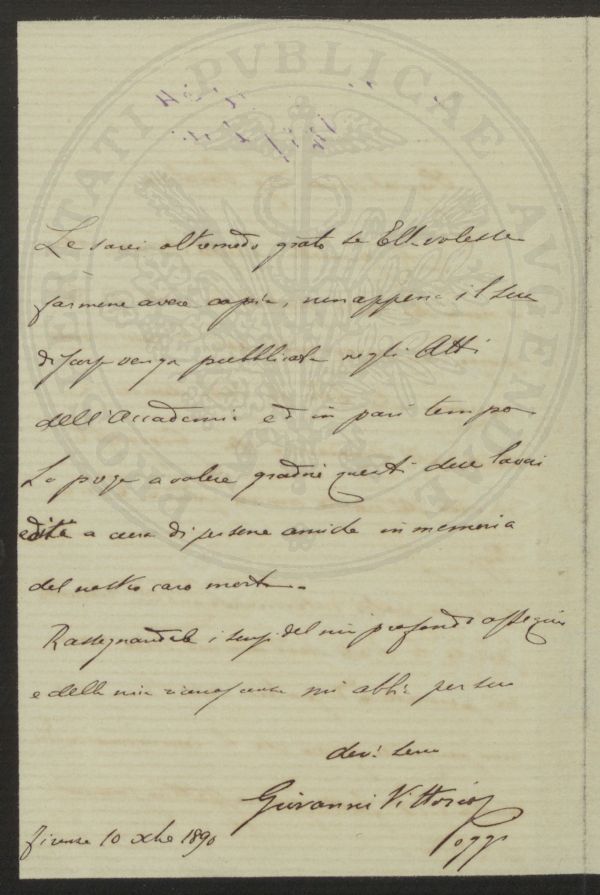 Le sarei oltremodo grato se Ella volesse
farmene avere copia, non appena il suo
discorso venga pubblicato negli Atti
dell'Accademia ed in pari tempo
La prego a volere gradire questi due lavori
editi a cura di persone amiche in memoria
del nostro caro morto.
Rassegnandole i sensi del mio profondo ossequio
e della mia riconoscenza mi abbia per suo
dev: servo
Giovanni Vittorio
Poggi
Firenze 10 Xbre 1890
PROSPERITATI PUBLICAE AUGENDAE